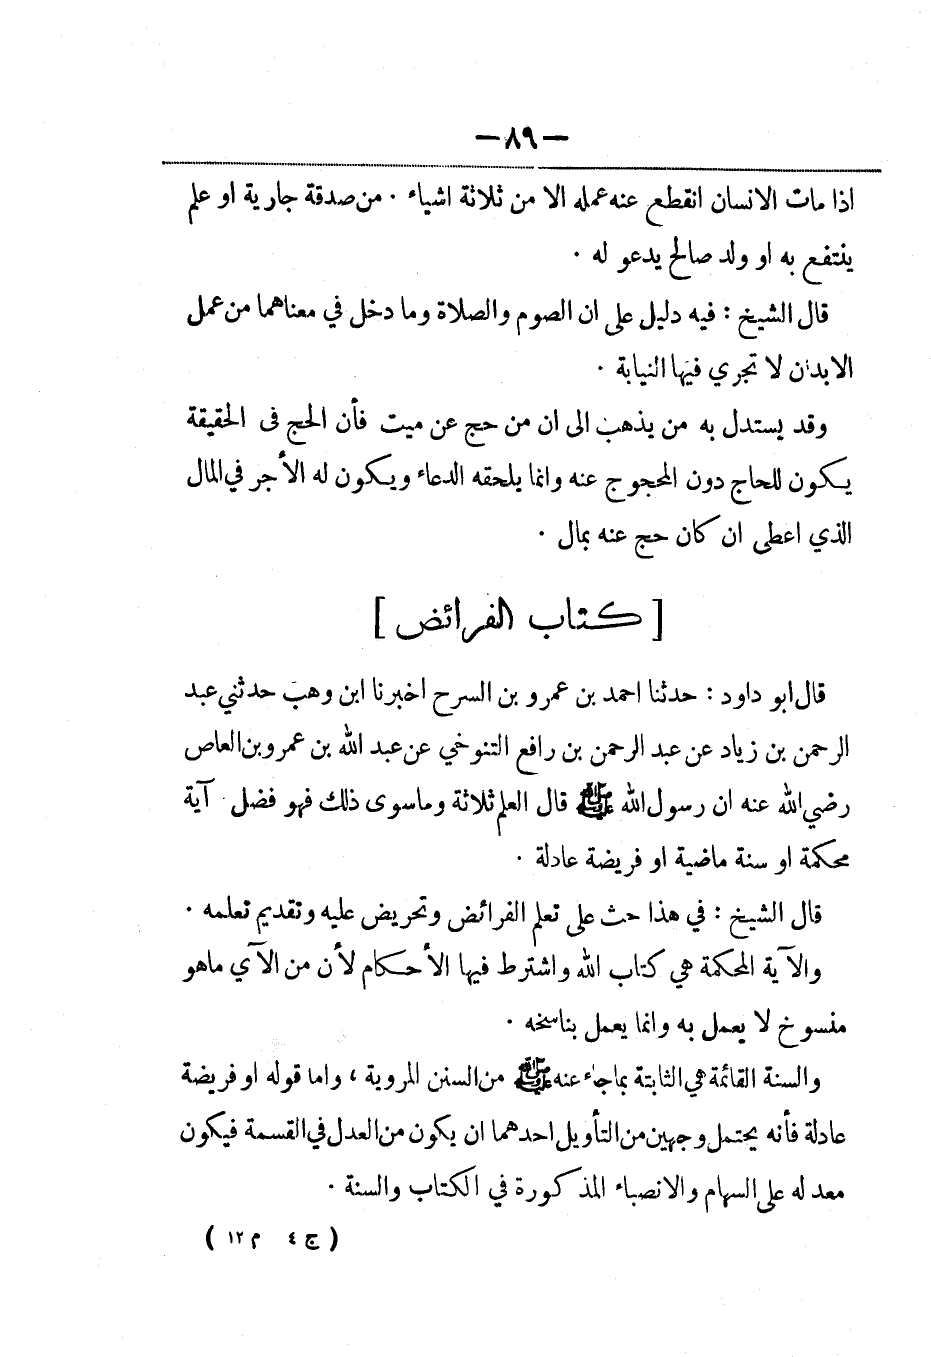 — ٨٩ —
اذا مات الانسان انقطع عنه عمله الا من ثلاثة اشياء . من صدقة جارية او علم
ينتفع به او ولد صالح يدعو له .
قال الشيخ : فيه دليل على ان الصوم والصلاة وما دخل في معناهما من عمل
الابدان لا تجري فيها النيابة .
وقد يستدل به من يذهب الى ان من حج عن ميت فأن الحج فى الحقيقة
يكون للحاج دون المحجوج عنه وانما يلحقه الدعاء ويكون له الأجر في المال
الذي اعطى ان كان حج عنه بمال .
[ كتاب الفرائض ]
قال ابو داود : حدثنا احمد بن عمرو بن السرح اخبرنا ابن وهب حدثني عبد
الرحمن بن زياد عن عبد الرحمن بن رافع التنوخي عن عبد الله بن عمرو بن العاص
رضي الله عنه ان رسول الله ﷺ قال العلم ثلاثة وما سوى ذلك فهو فضل . آية
محكمة او سنة ماضية او فريضة عادلة .
قال الشيخ : في هذا حث على تعلم الفرائض وتحريض عليه وتقديم تعلمه .
والآية المحكمة هي كتاب الله واشترط فيها الأحكام لأن من الآي ماهو
منسوخ لا يعمل به وانما يعمل بناسخه .
والسنة القائمة هي الثابتة بما جاء عنه ﷺ من السنن المروية ، واما قوله او فريضة
عادلة فأنه يحتمل وجهين من التأويل احدهما ان يكون من العدل في القسمة فيكون
معدله على السهام والانصباء المذكورة في الكتاب والسنة .
( ج ٤ م ١٢ )